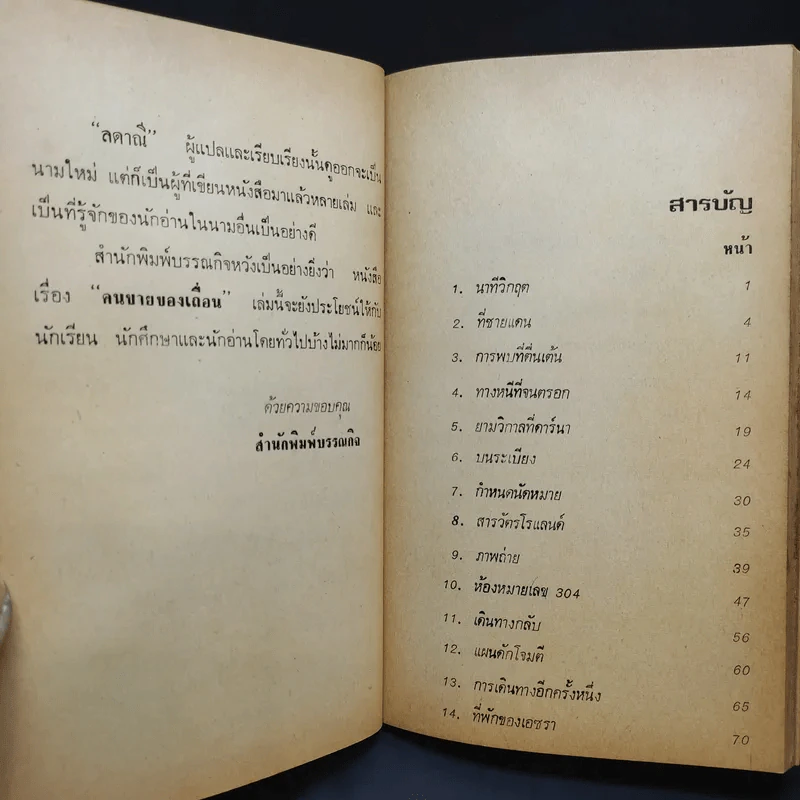 “ลดาณี” ผู้แปลและเรียบเรียงนั้นดูออกจะเป็น
นามใหม่ แต่ก็เป็นผู้ที่เขียนหนังสือมาแล้วหลายเล่ม และ
เป็นที่รู้จักของนักอ่านในนามอื่นเป็นอย่างดี
สำนักพิมพ์บรรณกิจหวังเป็นอย่างยิ่งว่า หนังสือ
เรื่อง “คนขายของเถื่อน” เล่มนี้จะยังประโยชน์ให้กับ
นักเรียน นักศึกษาและนักอ่านโดยทั่วไปบ้างไม่มากก็น้อย
ด้วยความขอบคุณ
สำนักพิมพ์บรรณกิจ
สารบัญ
หน้า
1. นาทีวิกฤต 1
2. ที่ชายแดน 4
3. การพบที่ตื่นเต้น 11
4. ทางหนีที่จนตรอก 14
5. ยามวิกาลที่ดาร์นา 19
6. บนระเบียง 24
7. กำหนดนัดหมาย 30
8. สารวัตรโรแลนด์ 35
9. ภาพถ่าย 39
10. ห้องหมายเลข 304 47
11. เดินทางกลับ 56
12. แผนดักโจมตี 60
13. การเดินทางอีกครั้งหนึ่ง 65
14. ที่พักของเอซรา 70